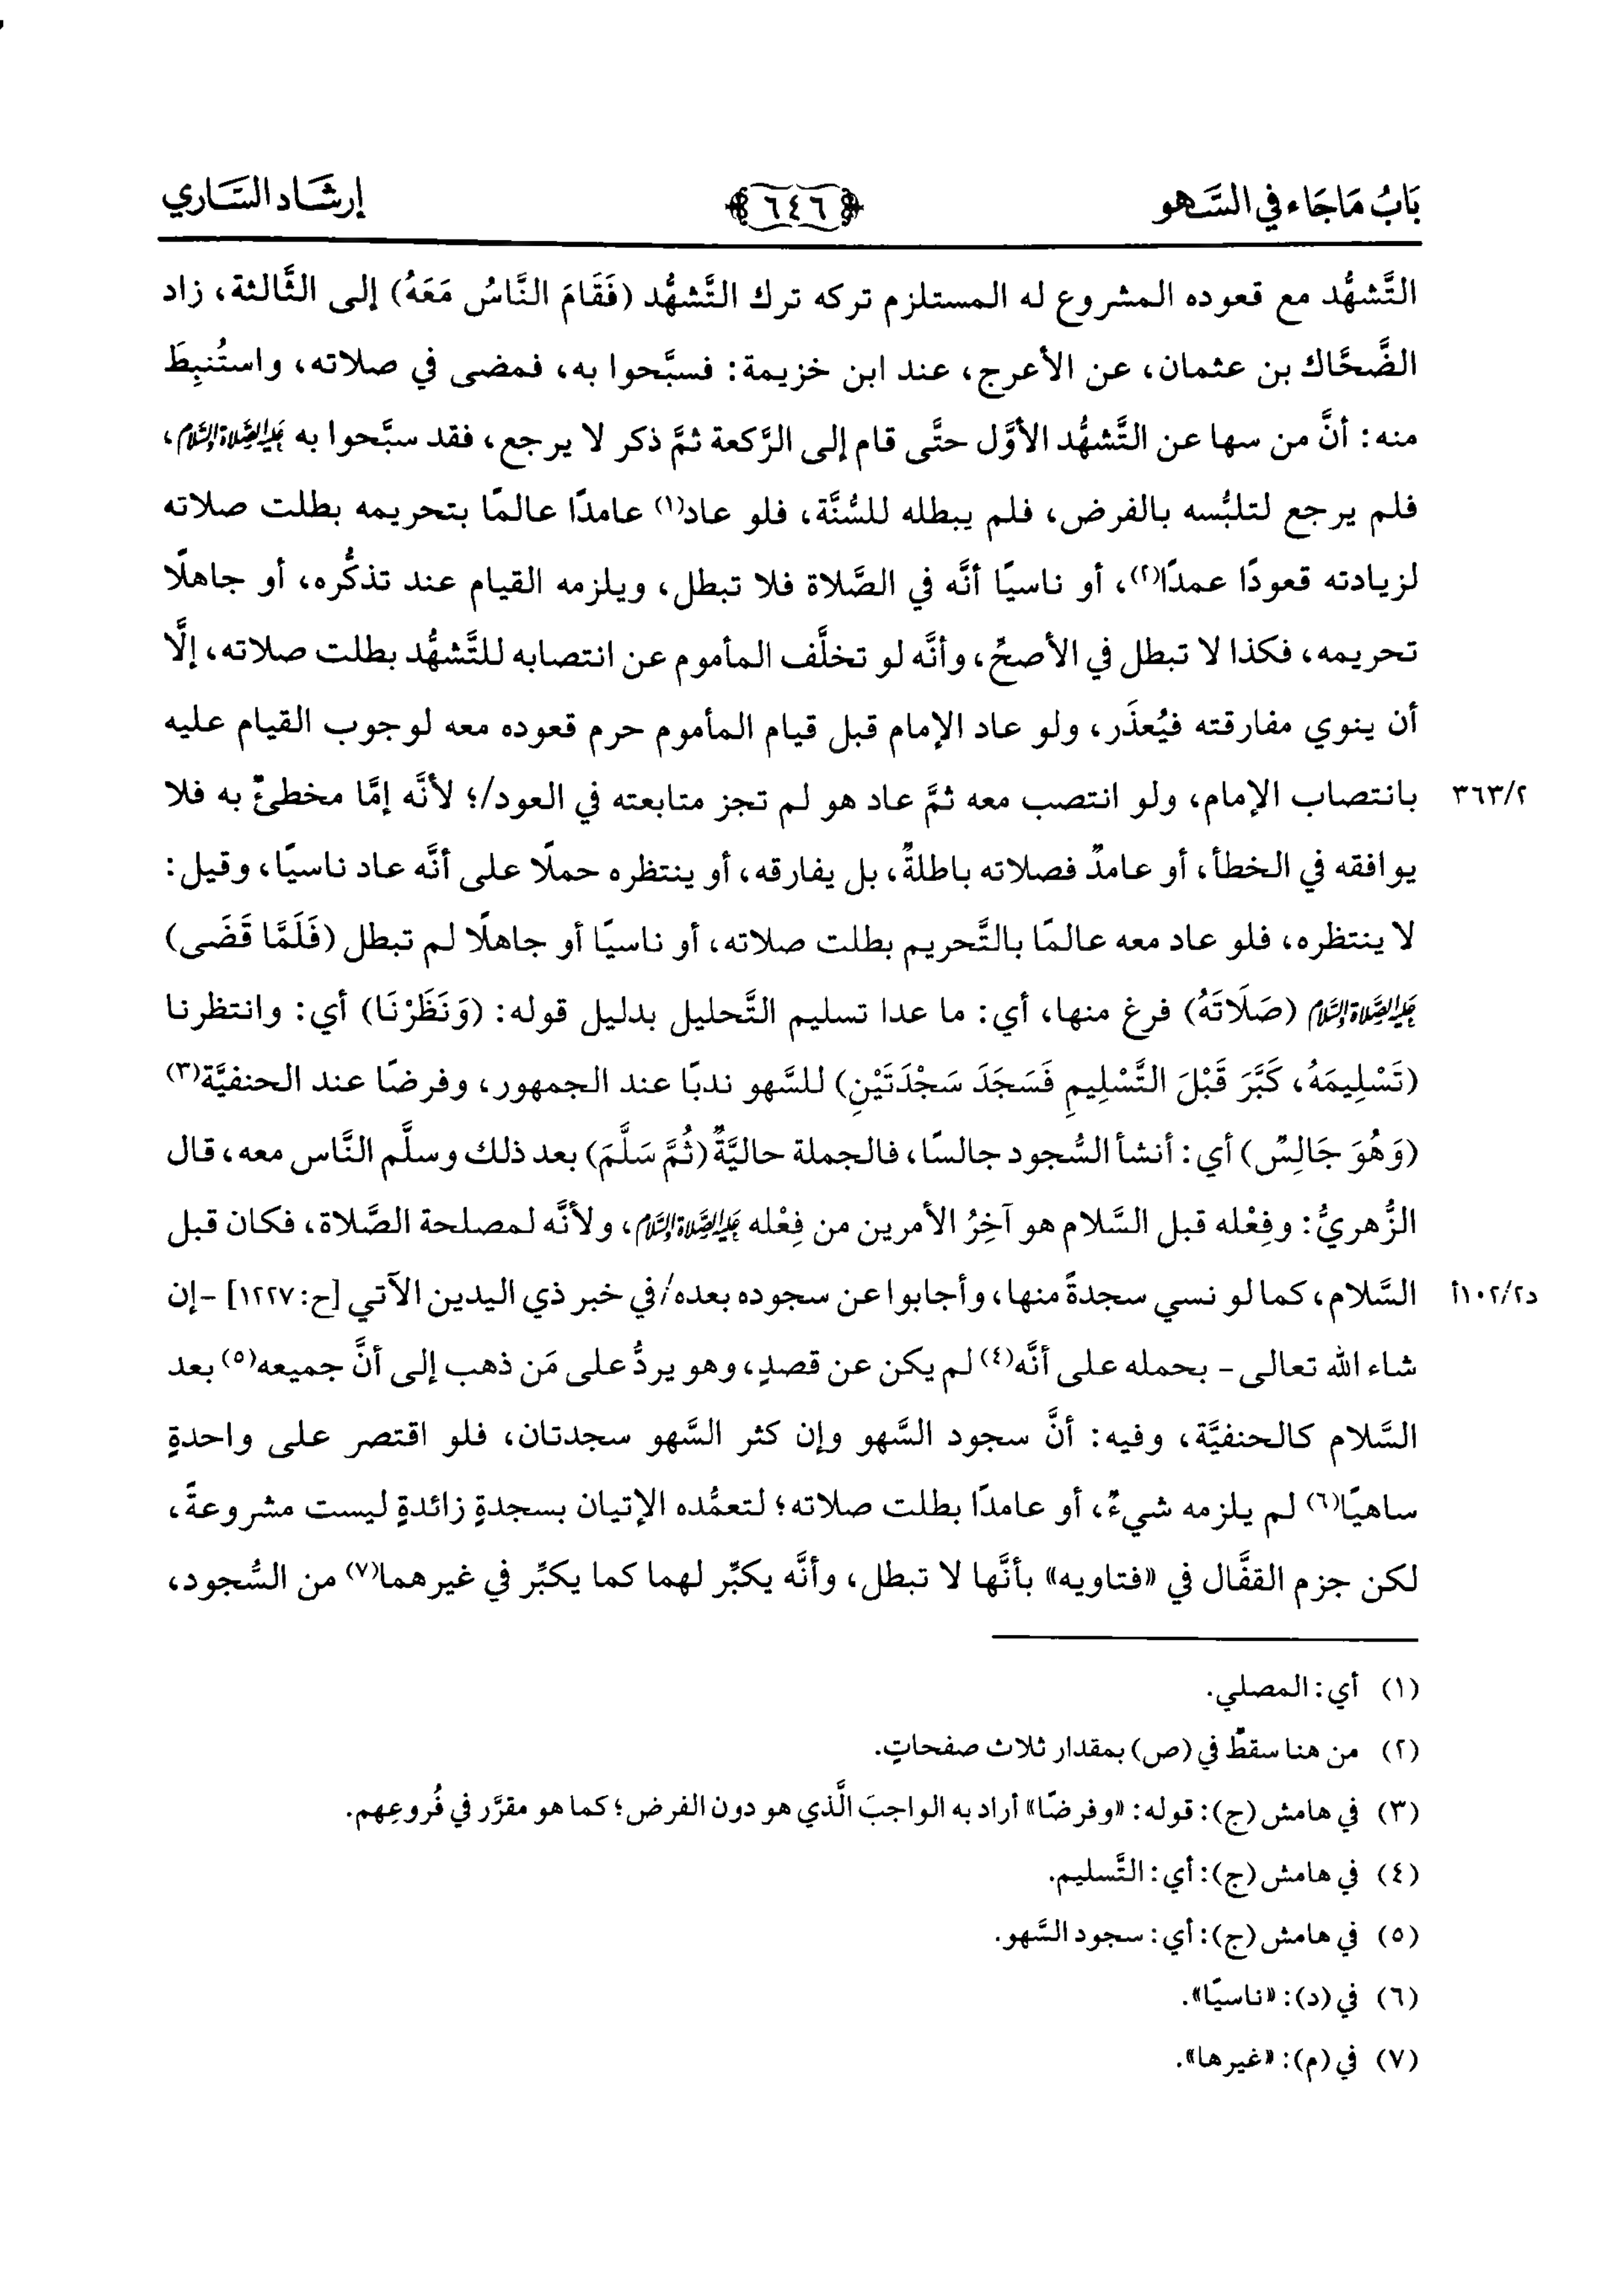 بَابُ مَا جَاء في السَّهو
٦٤٦
إرشَاد السَّاري
التَّشهُّد مع قعوده المشروع له المستلزم تركه ترك التَّشهُّد (فَقَامَ النَّاسُ مَعَهُ) إلى الثَّالثة، زاد
الضَّحَّاك بن عثمان، عن الأعرج، عند ابن خزيمة: فسبَّحوا به، فمضى في صلاته، واستُنبِطَ
منه: أنَّ من سها عن التَّشهُّد الأوَّل حتَّى قام إلى الرَّكعة ثمَّ ذكر لا يرجع، فقد سبَّحوا به عليه الصَّلاة والسَّلام،
فلم يرجع لتلبُّسه بالفرض، فلم يبطله للسُّنَّة، فلو عاد(١) عامدًا عالمًا بتحريمه بطلت صلاته
لزيادته قعودًا عمدًا(٢)، أو ناسيًا أنَّه في الصَّلاة فلا تبطل، ويلزمه القيام عند تذكُّره، أو جاهلًا
تحريمه، فكذا لا تبطل في الأصحِّ، وأنَّه لو تخلَّف المأموم عن انتصابه للتَّشهُّد بطلت صلاته، إلَّا
أن ينوي مفارقته فيُعذَر، ولو عاد الإمام قبل قيام المأموم حرم قعوده معه لوجوب القيام عليه
بانتصاب الإمام، ولو انتصب معه ثمَّ عاد هو لم تجز متابعته في العود/؛ لأنَّه إمَّا مخطئٌ به فلا
٣٦٣/٢
يوافقه في الخطأ، أو عامدٌ فصلاته باطلةٌ، بل يفارقه، أو ينتظره حملًا على أنَّه عاد ناسيًا، وقيل:
لا ينتظره، فلو عاد معه عالمًا بالتَّحريم بطلت صلاته، أو ناسيًا أو جاهلًا لم تبطل (فَلَمَّا قَضَى)
عليه الصَّلاة والسَّلام (صَلَاتَهُ) فرغ منها، أي: ما عدا تسليم التَّحليل بدليل قوله: (وَنَظَرْنَا) أي: وانتظرنا
(تَسْلِيمَهُ، كَبَّرَ قَبْلَ التَّسْلِيمِ فَسَجَدَ سَجْدَتَيْنِ) للسَّهو ندبًا عند الجمهور، وفرضًا عند الحنفيَّة(٣)
(وَهُوَ جَالِسٌ) أي: أنشأ السُّجود جالسًا، فالجملة حاليَّةٌ (ثُمَّ سَلَّمَ) بعد ذلك وسلَّم النَّاس معه، قال
الزُّهريُّ: وفِعْله قبل السَّلام هو آخِرُ الأمرين من فِعْله عليه الصَّلاة والسَّلام، ولأنَّه لمصلحة الصَّلاة، فكان قبل
السَّلام، كما لو نسي سجدةً منها، وأجابوا عن سجوده بعده/ في خبر ذي اليدين الآتي [ح: ١٢٢٧] -إن
د١٠٢/٢أ
شاء الله تعالى- بحمله على أنَّه(٤) لم يكن عن قصدٍ، وهو يردُّ على مَن ذهب إلى أنَّ جميعه(٥) بعد
السَّلام كالحنفيَّة، وفيه: أنَّ سجود السَّهو وإن كثر السَّهو سجدتان، فلو اقتصر على واحدةٍ
ساهيًا(٦) لم يلزمه شيءٌ، أو عامدًا بطلت صلاته؛ لتعمُّده الإتيان بسجدةٍ زائدةٍ ليست مشروعةً،
لكن جزم القفَّال في «فتاويه» بأنَّها لا تبطل، وأنَّه يكبِّر لهما كما يكبِّر في غيرهما(٧) من السُّجود،
(١) أي: المصلي.
(٢) من هنا سقطٌ في (ص) بمقدار ثلاث صفحاتٍ.
(٣) في هامش (ج): قوله: «وفرضًا» أراد به الواجبَ الَّذي هو دون الفرض؛ كما هو مقرَّر في فُروعِهم.
(٤) في هامش (ج): أي: التَّسليم.
(٥) في هامش (ج): أي: سجود السَّهو.
(٦) في (د): «ناسيًا».
(٧) في (م): «غيرها».